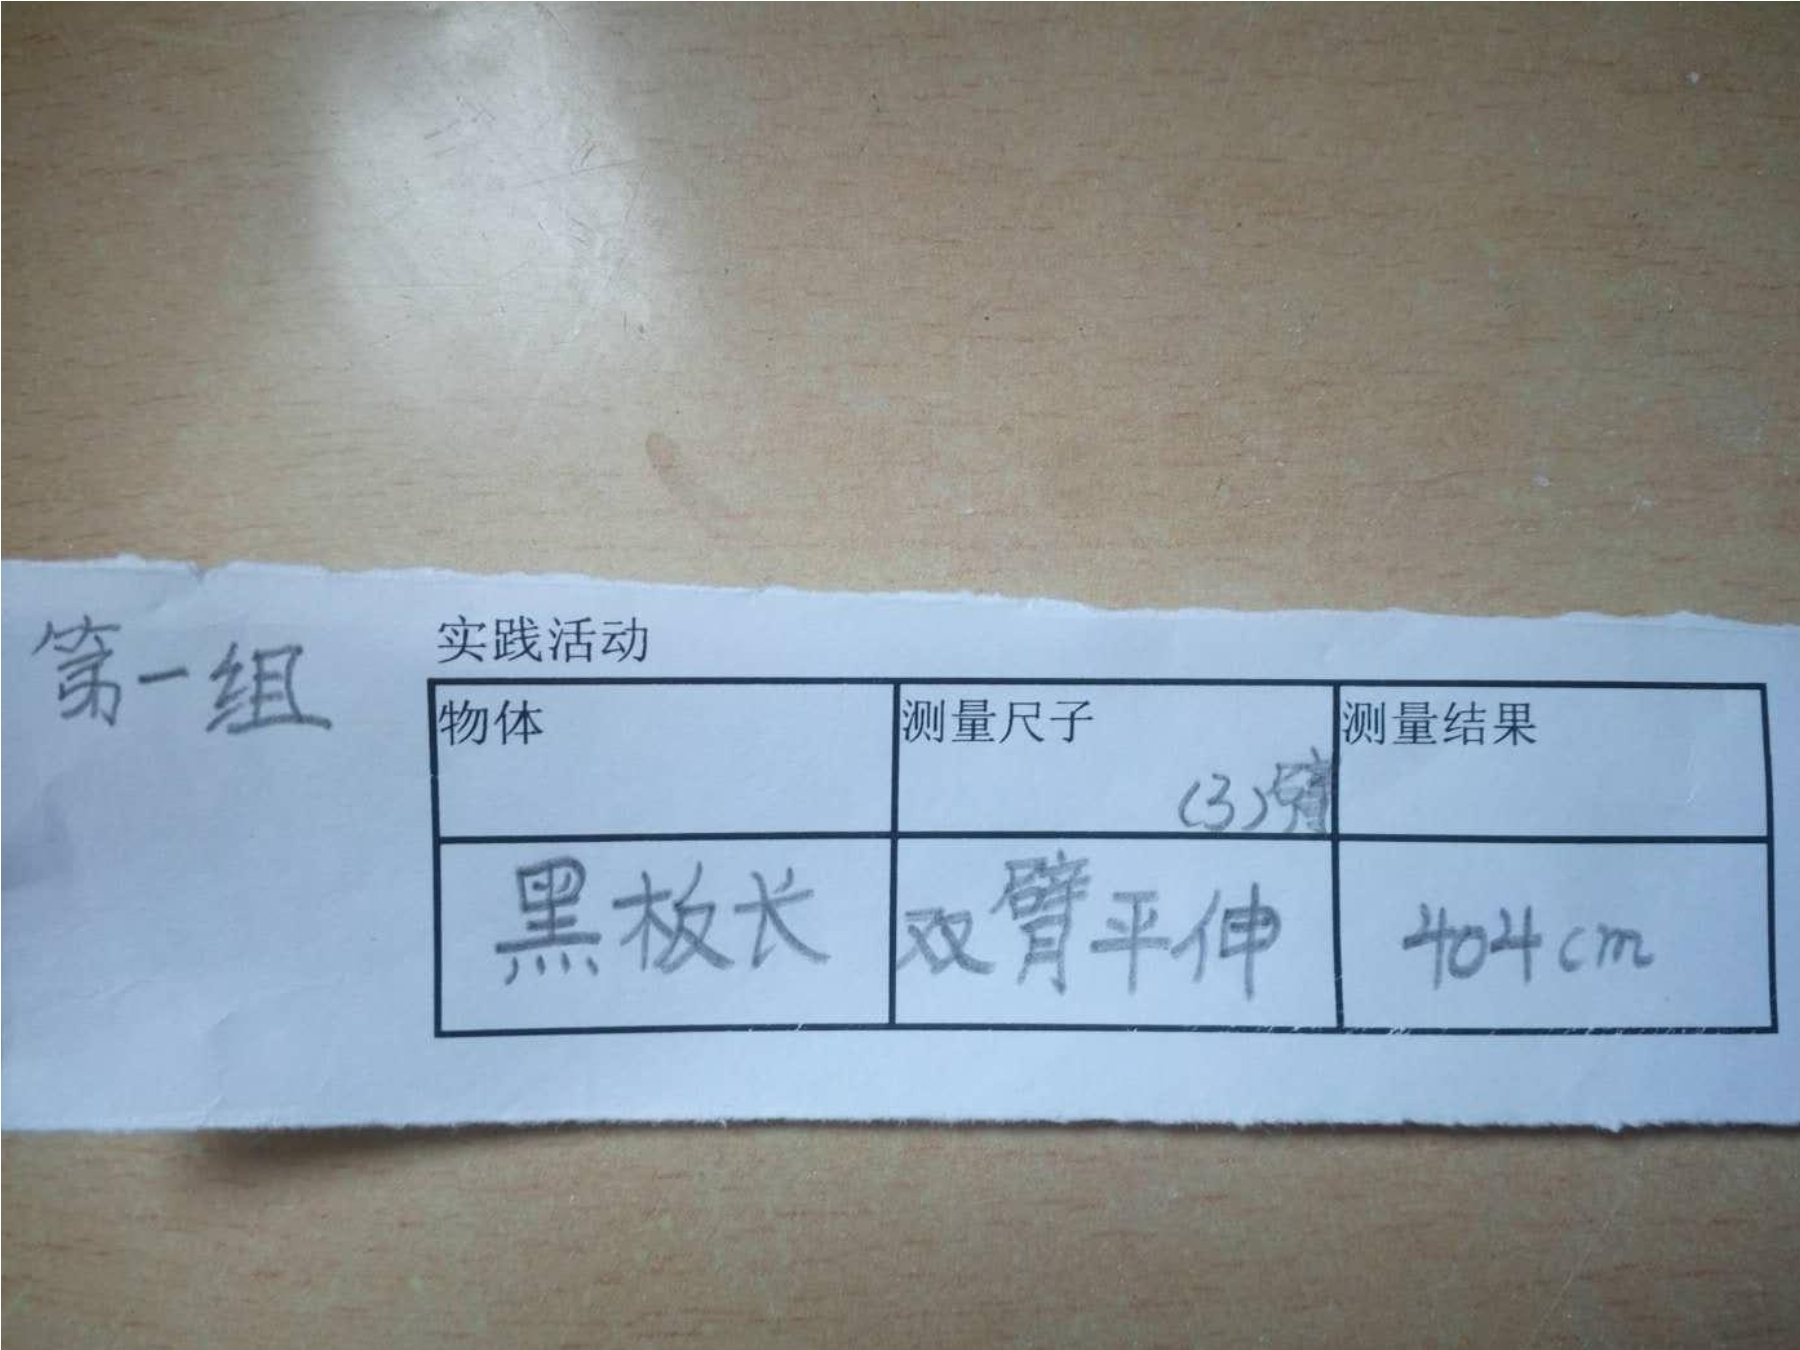 第一组
实践活动
物体 测量尺子 测量结果
(3)臂
黑板长 双臂平伸 404cm